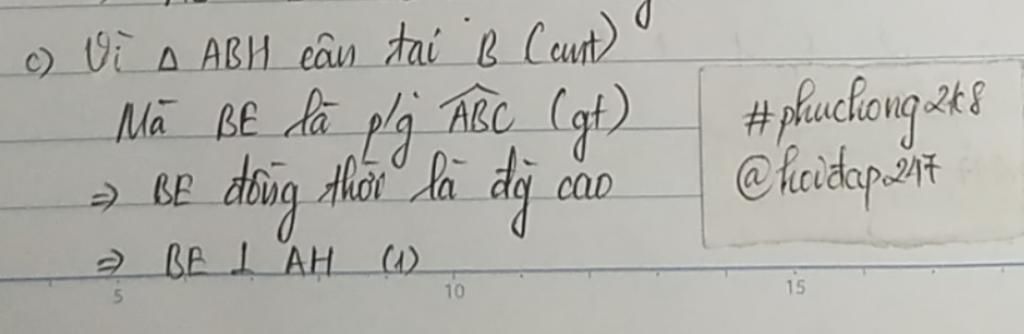 c) Vì Δ ABH cân tại B (cmt)
Mà BE là p/g ABC (gt)
⇒ BE đồng thời là đg cao
⇒ BE ⊥ AH (1)
#phuchong2k8
@hoidap247
5 10 15